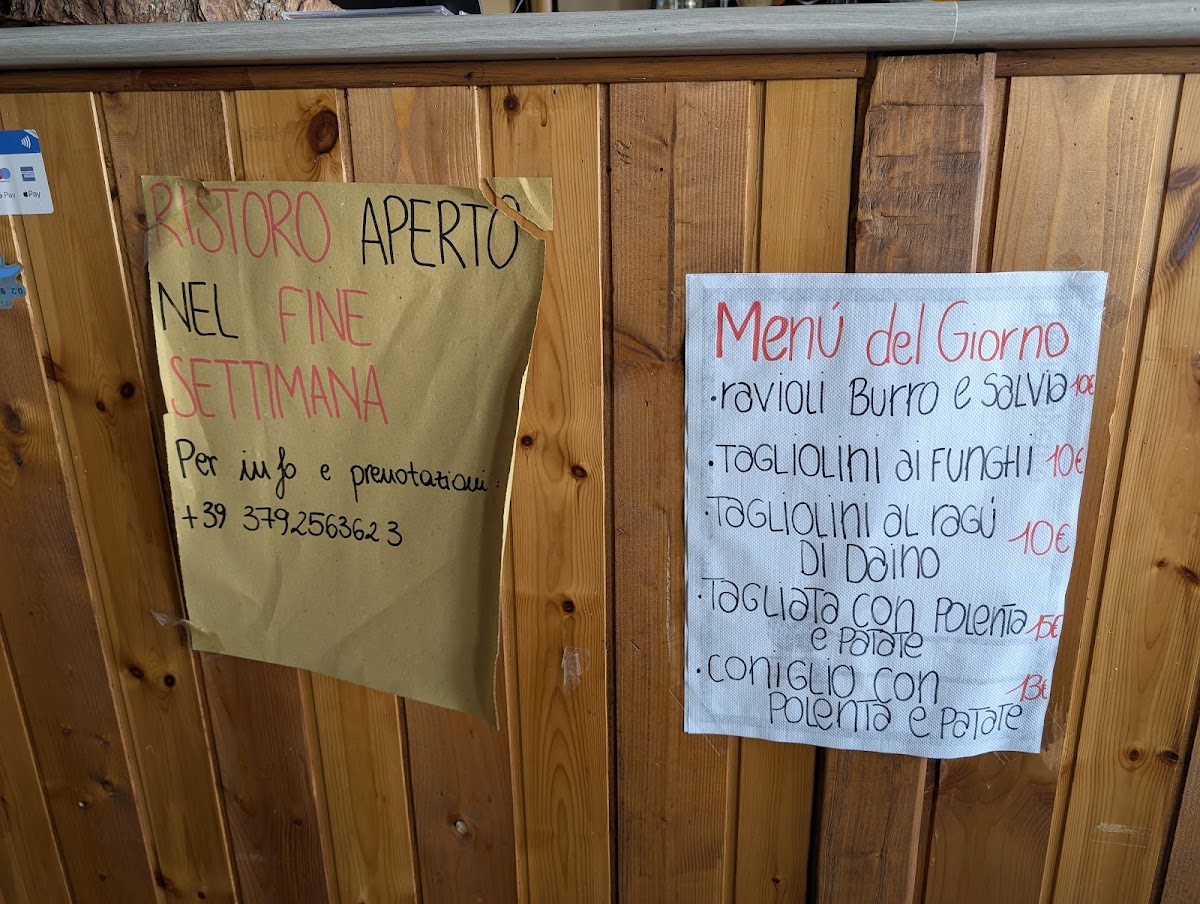 RISTORO APERTO
NEL FINE
SETTIMANA
Per info e prenotazioni:
+39 3792563623
Menú del Giorno
·RAVIOLI BURRO e SALVIA 10€
·TAGLIOLINI AI FUNGHI 10€
·TAGLIOLINI AL RAGÚ
DI DAINO 10€
·TAGLIATA CON POLENTA
e PATATE 15€
·CONIGLIO CON
POLENTA e PATATE 13€
Pay
Pay
& CO.